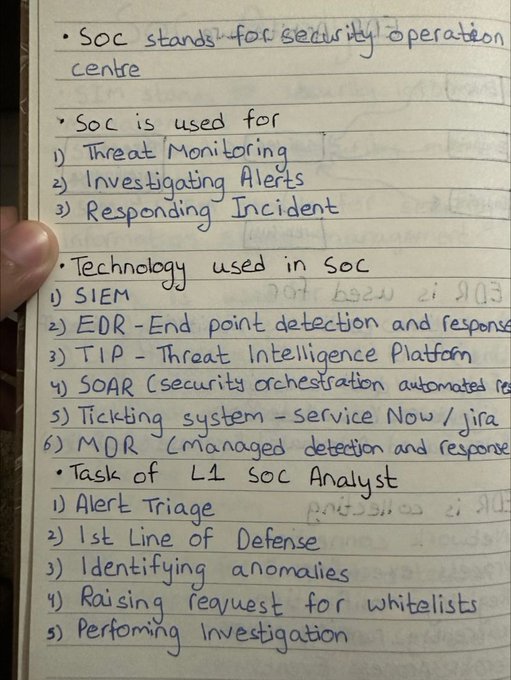 • SOC stands for security operation
centre
• SOC is used for
1) Threat Monitoring
2) Investigating Alerts
3) Responding Incident
• Technology used in SOC
1) SIEM
2) EDR - End point detection and response
3) TIP - Threat Intelligence Platfom
4) SOAR (security orchestration automated res
5) Tickting system - service Now / jira
6) MDR (Managed detection and response
• Task of L1 SOC Analyst
1) Alert Triage
2) 1st Line of Defense
3) Identifying anomalies
4) Raising request for whitelists
5) Perfoming Investigation